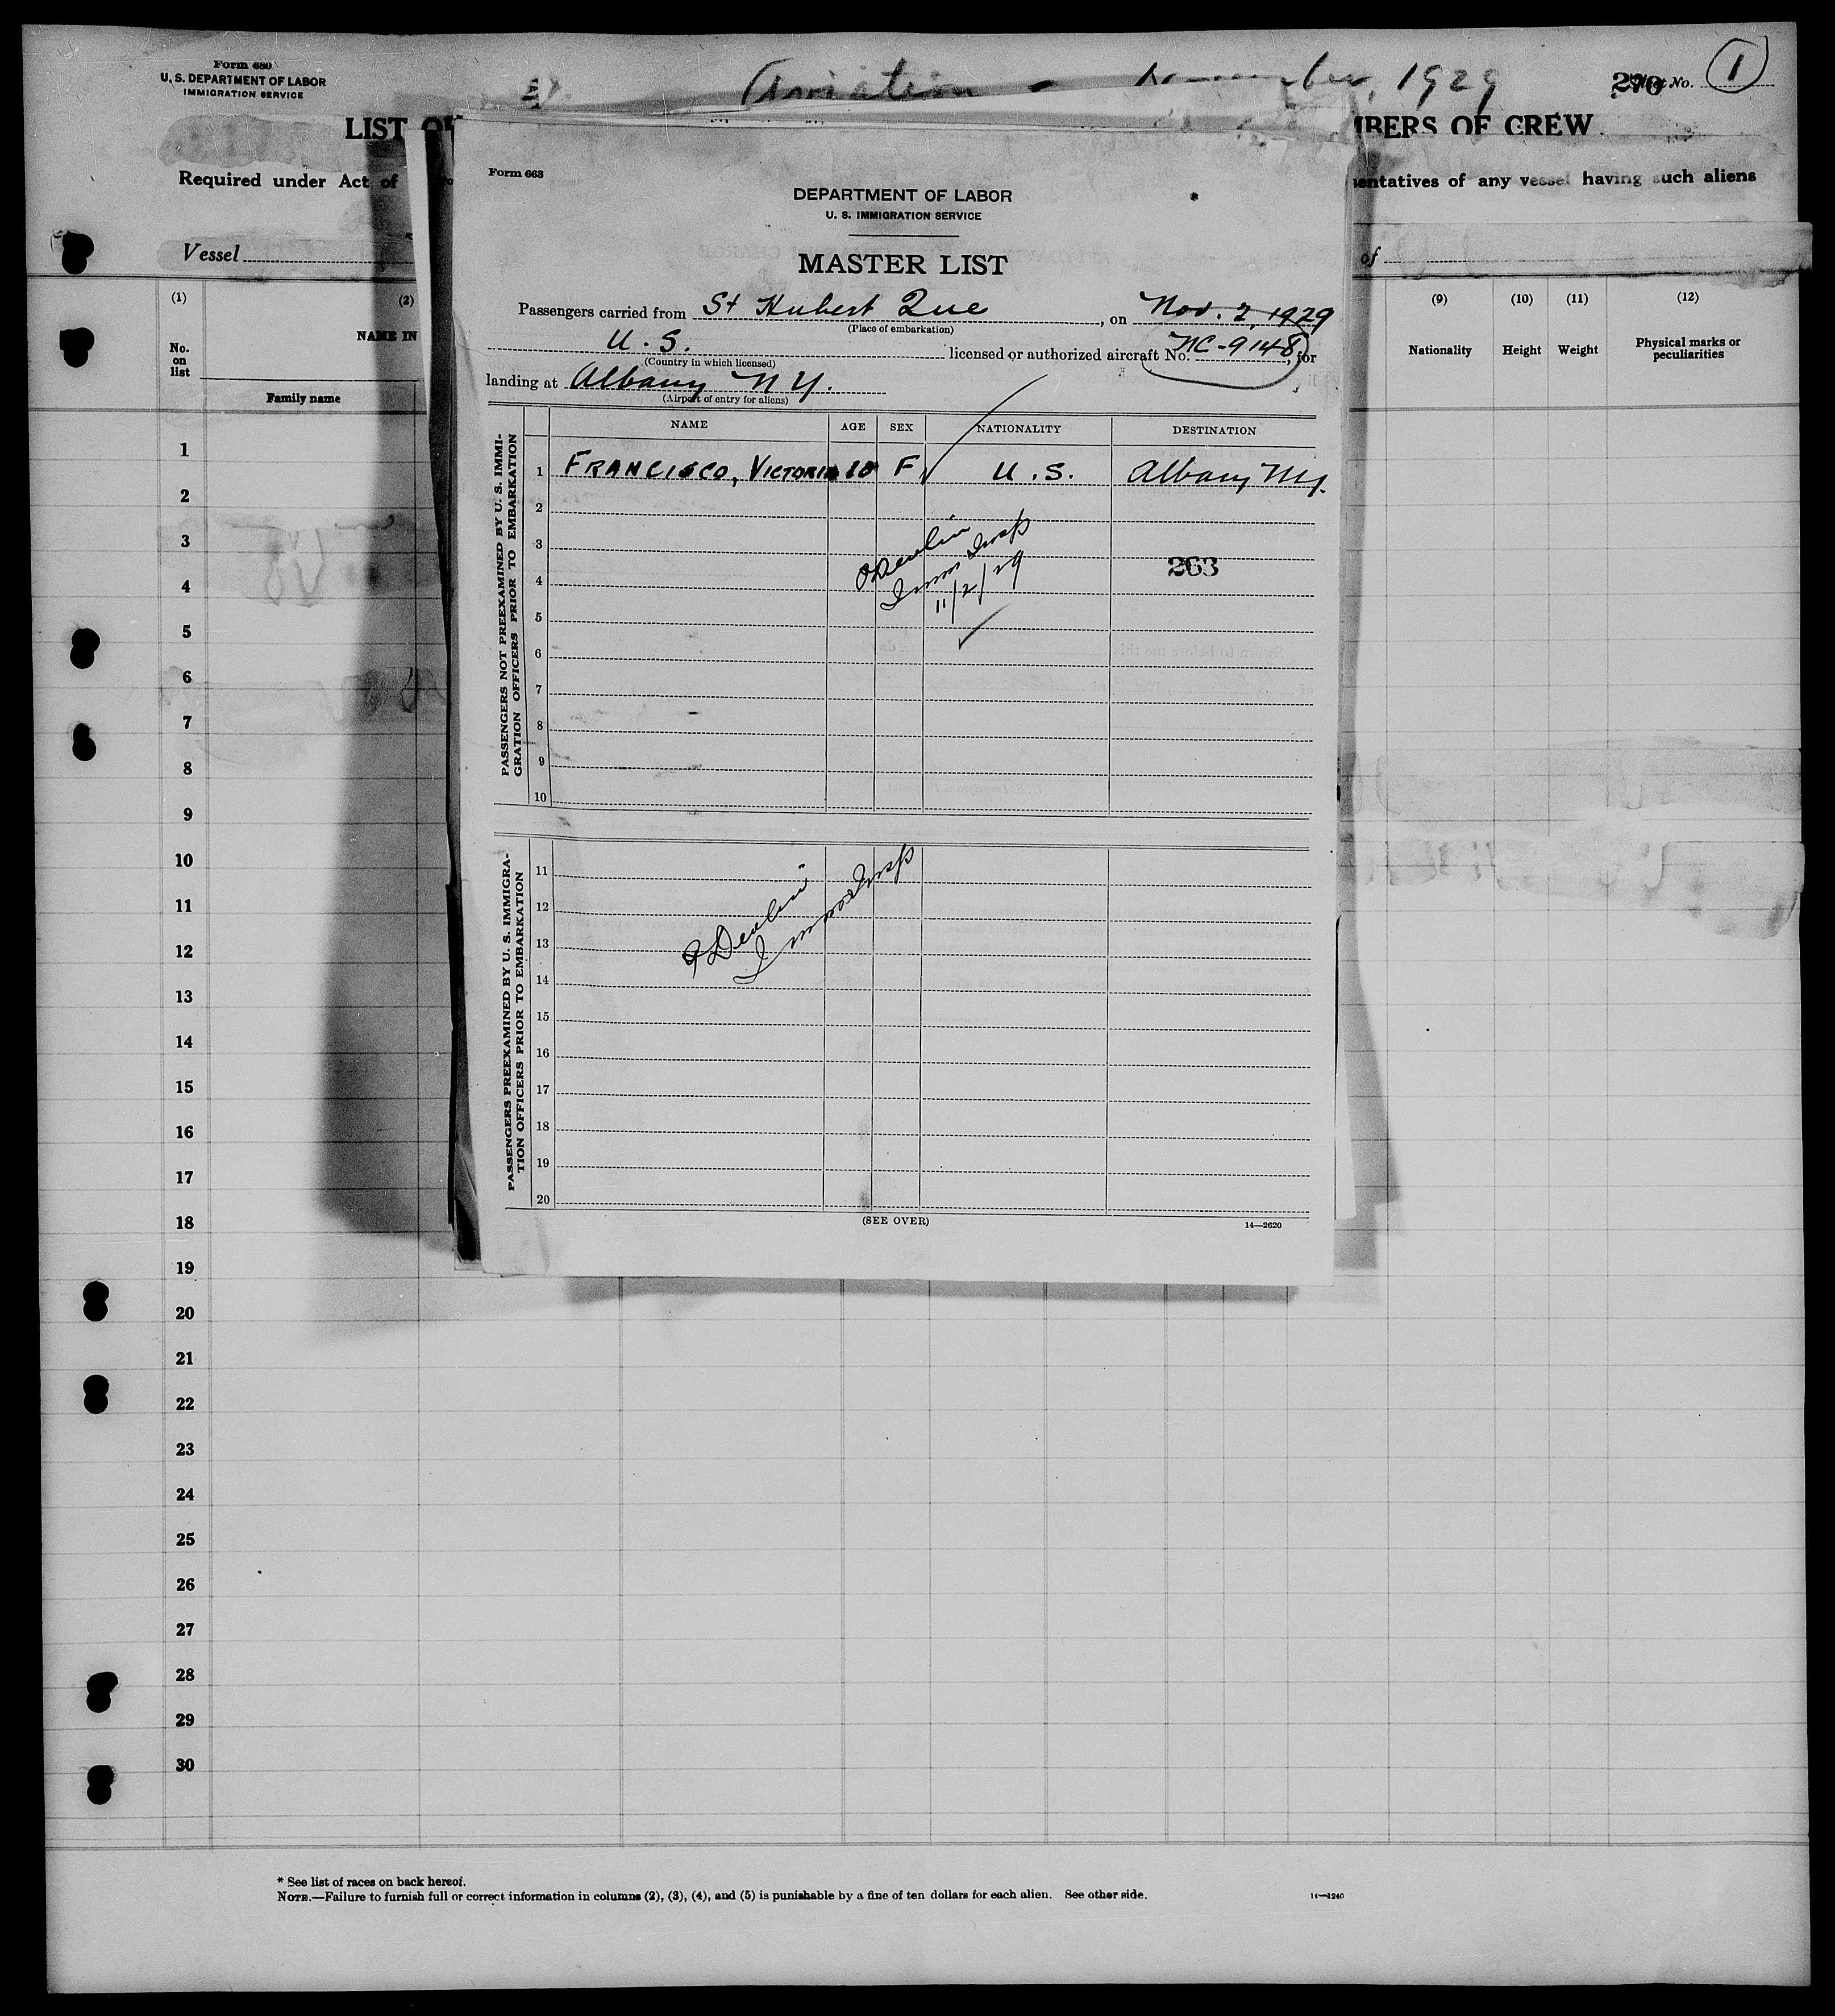 Form 680
U. S. DEPARTMENT OF LABOR
IMMIGRATION SERVICE
Aviation - November, 1929
270
No. 1
LIST OF
MBERS OF CREW
Required under Act of
sentatives of any vessel having such aliens
Vessel
of
(1)
(2)
(9)
(10)
(11)
(12)
No. on list
NAME IN
Family name
Nationality
Height
Weight
Physical marks or peculiarities
Form 663
DEPARTMENT OF LABOR
U. S. IMMIGRATION SERVICE
MASTER LIST
Passengers carried from St Hubert Que, on Nov. 2, 1929
(Place of embarkation)
U. S. licensed or authorized aircraft No. NC-9148, for
(Country in which licensed)
landing at Albany N Y.
(Airport of entry for aliens)
NAME AGE SEX NATIONALITY DESTINATION
PASSENGERS NOT PREEXAMINED BY U. S. IMMI-
GRATION OFFICERS PRIOR TO EMBARKATION
1 FRANCISCO, VICTORIA F U. S. Albany NY.
2
3
4
5
6
7
8
9
10
Devlin
Immr Insp
11/2/29
263
PASSENGERS PREEXAMINED BY U. S. IMMIGRA-
TION OFFICERS PRIOR TO EMBARKATION
11
12
13
14
15
16
17
18
19
20
Devlin
Immr Insp
(SEE OVER)
14—2620
1
2
3
4
5
6
7
8
9
10
11
12
13
14
15
16
17
18
19
20
21
22
23
24
25
26
27
28
29
30
* See list of races on back hereof.
NOTE.—Failure to furnish full or correct information in columns (2), (3), (4), and (5) is punishable by a fine of ten dollars for each alien. See other side.
14—1240